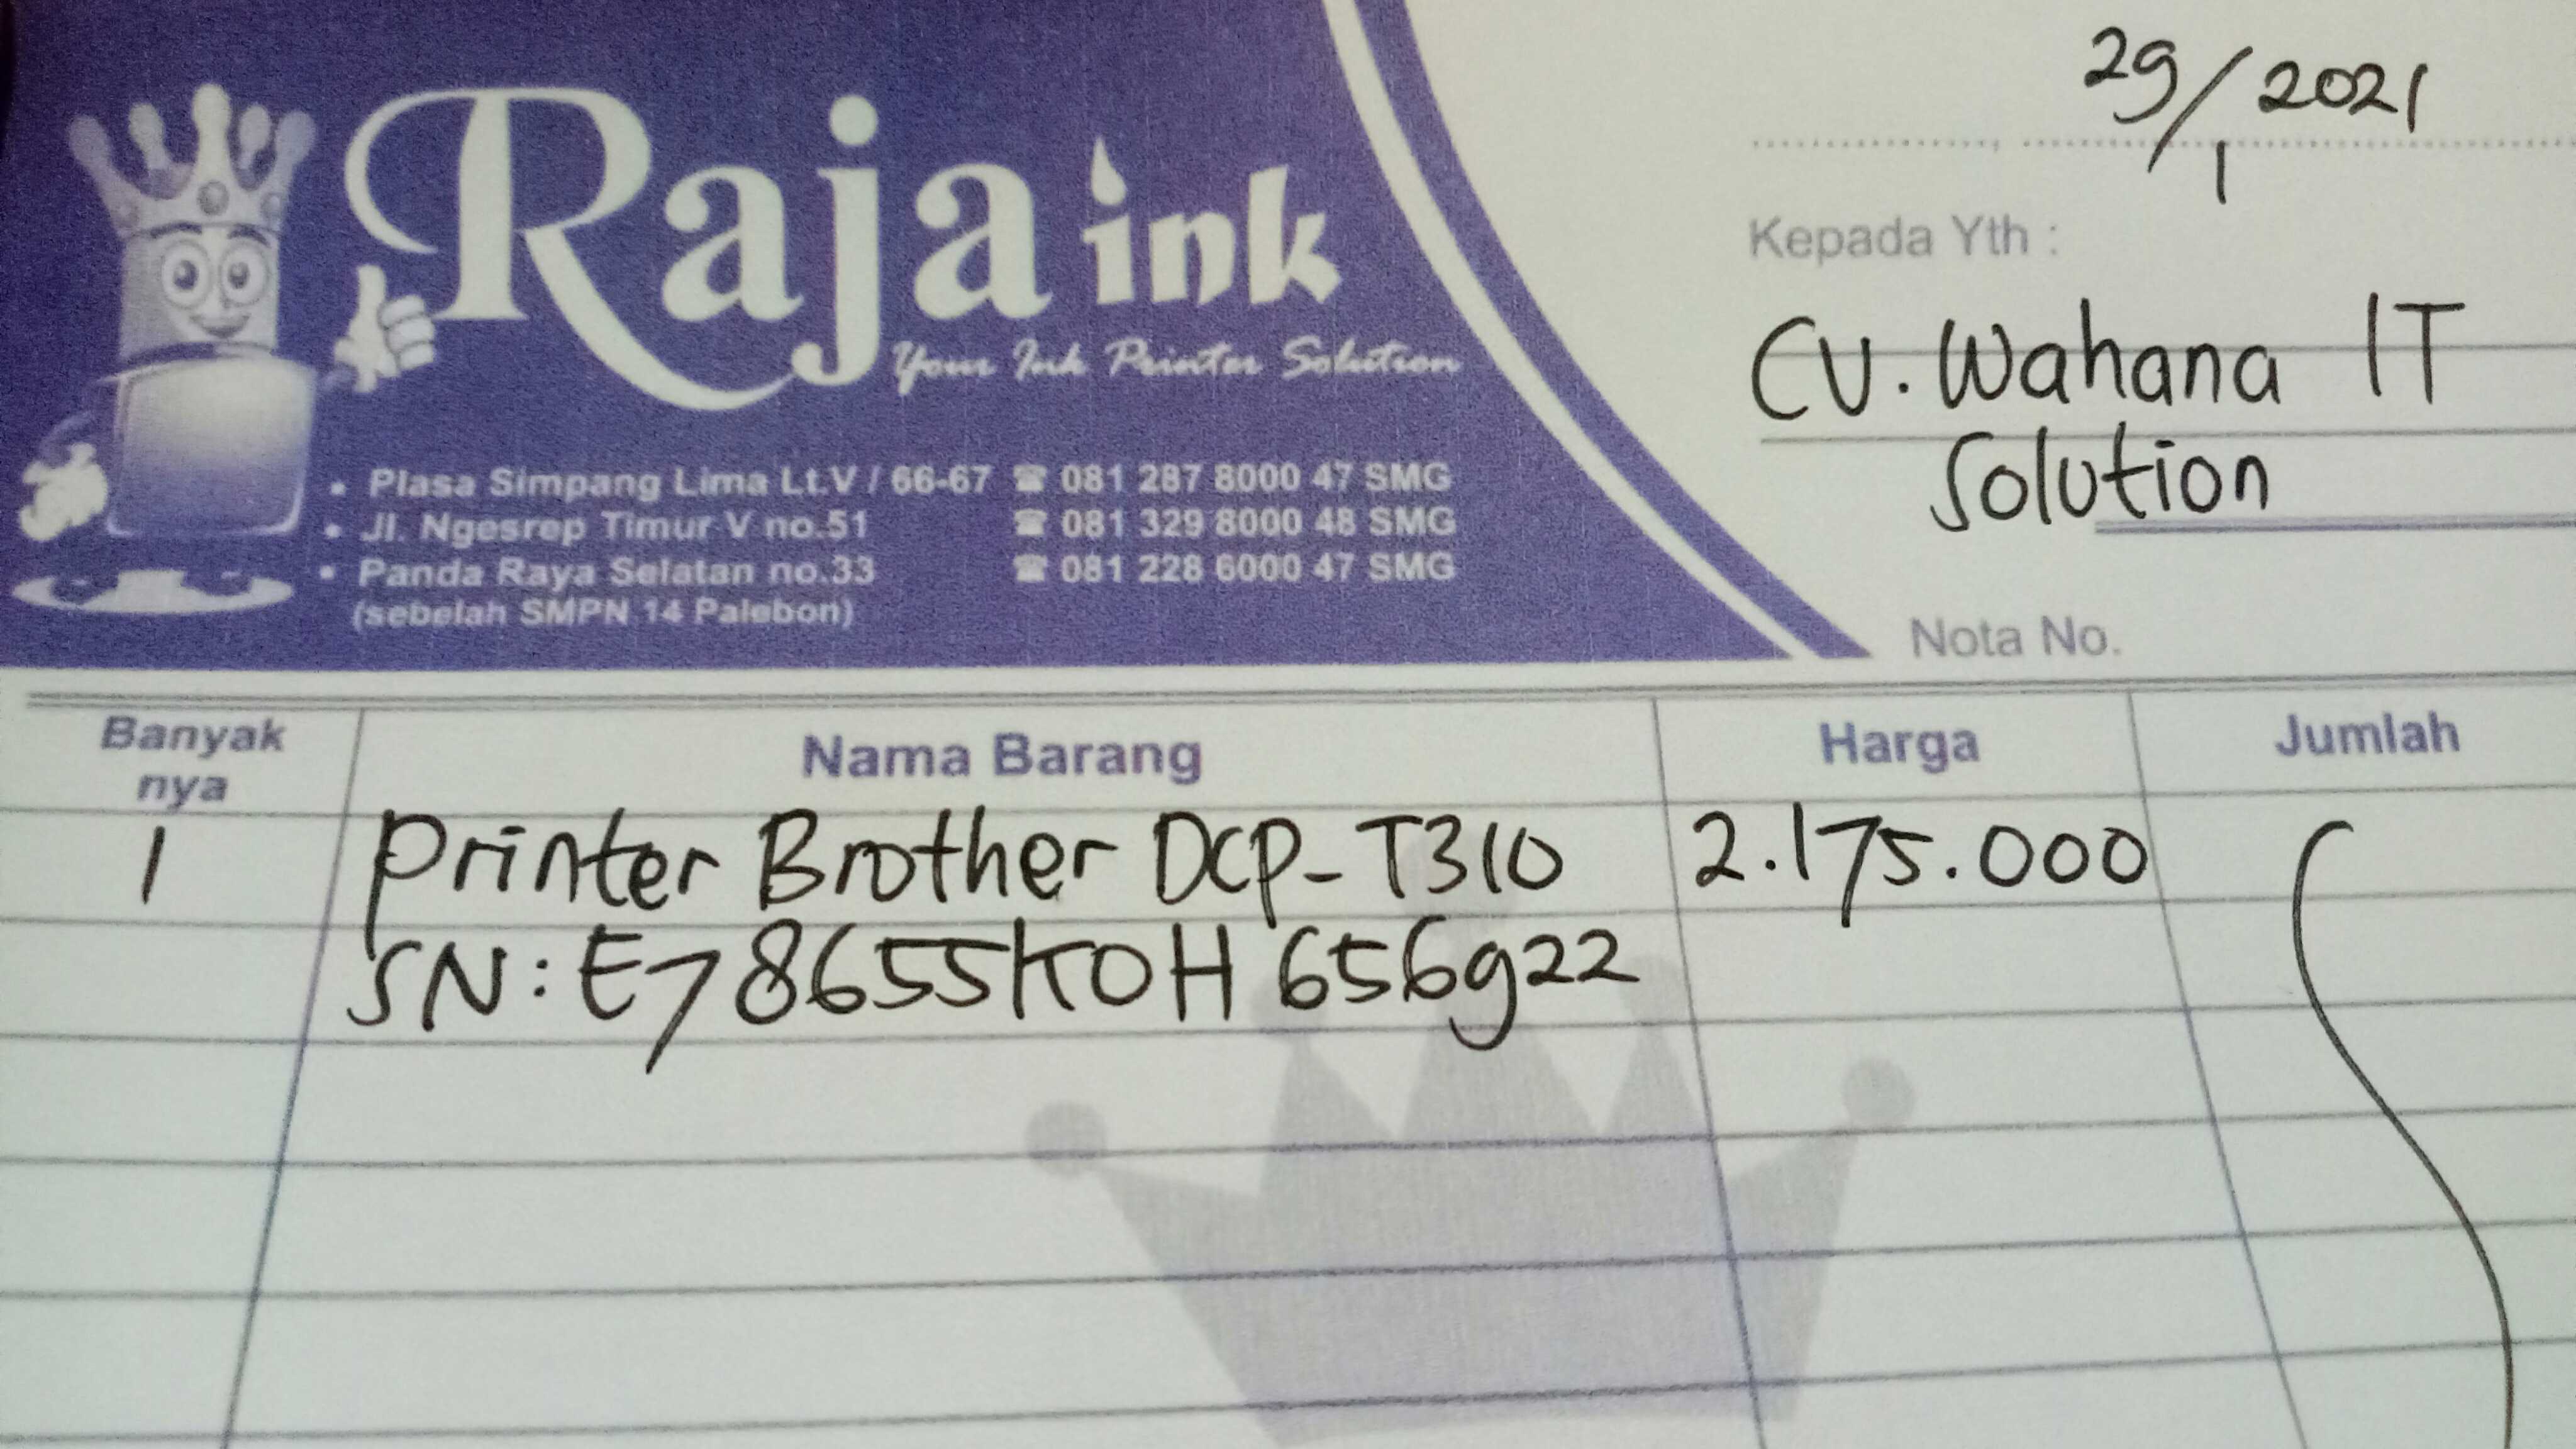 Raja ink
Your Ink Printer Solution
• Plasa Simpang Lima Lt.V / 66-67 ☎ 081 287 8000 47 SMG
• Jl. Ngesrep Timur V no.51 ☎ 081 329 8000 48 SMG
• Panda Raya Selatan no.33 ☎ 081 228 6000 47 SMG
(sebelah SMPN 14 Palebon)
29/1 2021
Kepada Yth :
CV. Wahana IT
Solution
Nota No.
Banyak nya Nama Barang Harga Jumlah
1 Printer Brother DCP-T310 2.175.000
SN: E78655K0H656922